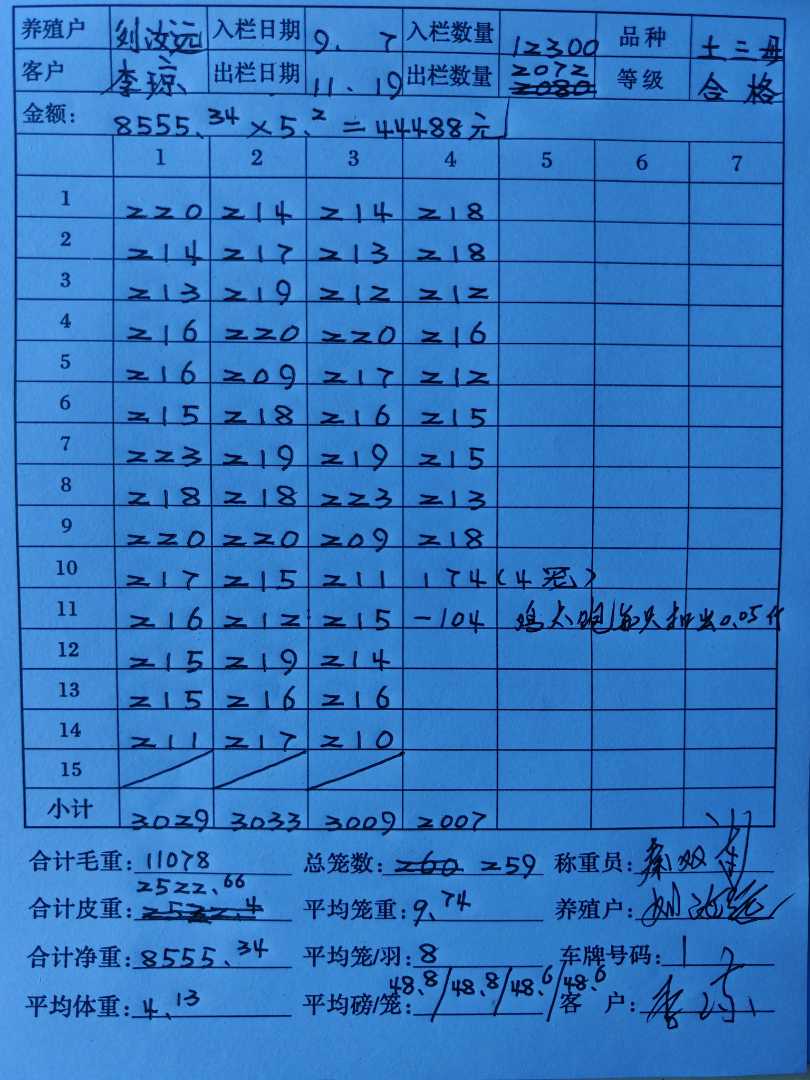 养殖户 刘汝远 入栏日期 9.7 入栏数量 12300 品种 土三母
客户 李琼 出栏日期 11.19 出栏数量 2072 2080 等级 合格
金额: 8555.34×5.2=44488元
1 2 3 4 5 6 7
1 220 214 214 218
2 214 217 213 218
3 213 219 212 212
4 216 220 220 216
5 216 209 217 212
6 215 218 216 215
7 223 219 219 215
8 218 218 223 213
9 220 220 209 218
10 217 215 211 174(4笼)
11 216 212 215 -104 鸡太饱每只扣出0.05斤
12 215 219 214
13 215 216 216
14 211 217 210
15
小计 3029 3033 3009 2007
合计毛重: 11078 总笼数: 260 259 称重员: 秦双
合计皮重: 2522.66 2522.4 平均笼重: 9.74 养殖户: 刘汝远
合计净重: 8555.34 平均笼/羽: 8 车牌号码: 1
平均体重: 4.13 平均磅/笼: 48.8/48.8/48.6/48.6 客户: 李琼